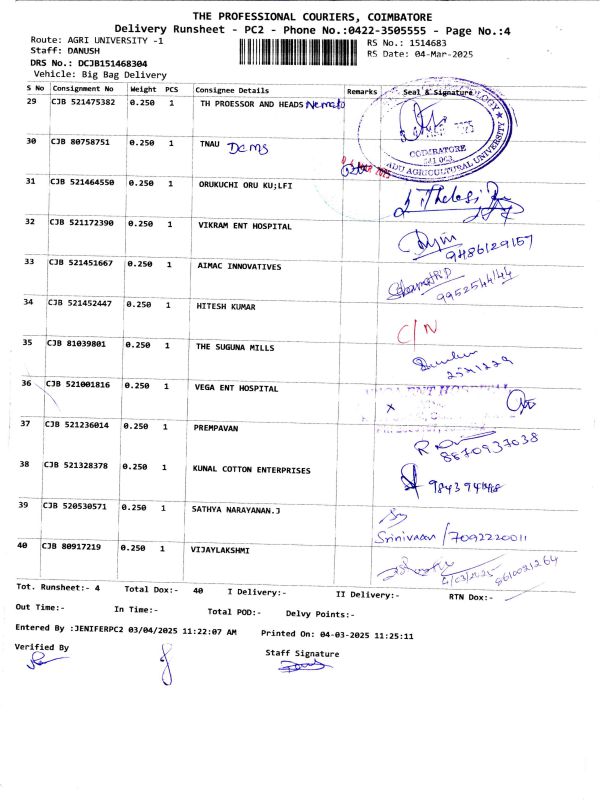 THE PROFESSIONAL COURIERS, COIMBATORE
Delivery Runsheet - PC2 - Phone No.:0422-3505555 - Page No.:4
Route: AGRI UNIVERSITY -1 RS No.: 1514683
Staff: DANUSH RS Date: 04-Mar-2025
DRS No.: DCJB151468304
Vehicle: Big Bag Delivery
S No Consignment No Weight PCS Consignee Details Remarks Seal & Signature
29 CJB 521475382 0.250 1 TH PROESSOR AND HEADS Nemato
30 CJB 80758751 0.250 1 TNAU DEMS
COIMBATORE
641 003.
ADU AGRICULTURAL UNIVERSITY
31 CJB 521464550 0.250 1 ORUKUCHI ORU KU;LFI
32 CJB 521172390 0.250 1 VIKRAM ENT HOSPITAL 9486129157
33 CJB 521451667 0.250 1 AIMAC INNOVATIVES 9952544144
34 CJB 521452447 0.250 1 HITESH KUMAR C/N
35 CJB 81039801 0.250 1 THE SUGUNA MILLS
36 CJB 521001816 0.250 1 VEGA ENT HOSPITAL x
37 CJB 521236014 0.250 1 PREMPAVAN 8870937038
38 CJB 521328378 0.250 1 KUNAL COTTON ENTERPRISES
39 CJB 520530571 0.250 1 SATHYA NARAYANAN.J Srinivaan /7092220011
40 CJB 80917219 0.250 1 VIJAYLAKSHMI 4/03/2025 8610021264
Tot. Runsheet:- 4 Total Dox:- 40 I Delivery:- II Delivery:- RTN Dox:-
Out Time:- In Time:- Total POD:- Delvy Points:-
Entered By :JENIFERPC2 03/04/2025 11:22:07 AM Printed On: 04-03-2025 11:25:11
Verified By Staff Signature